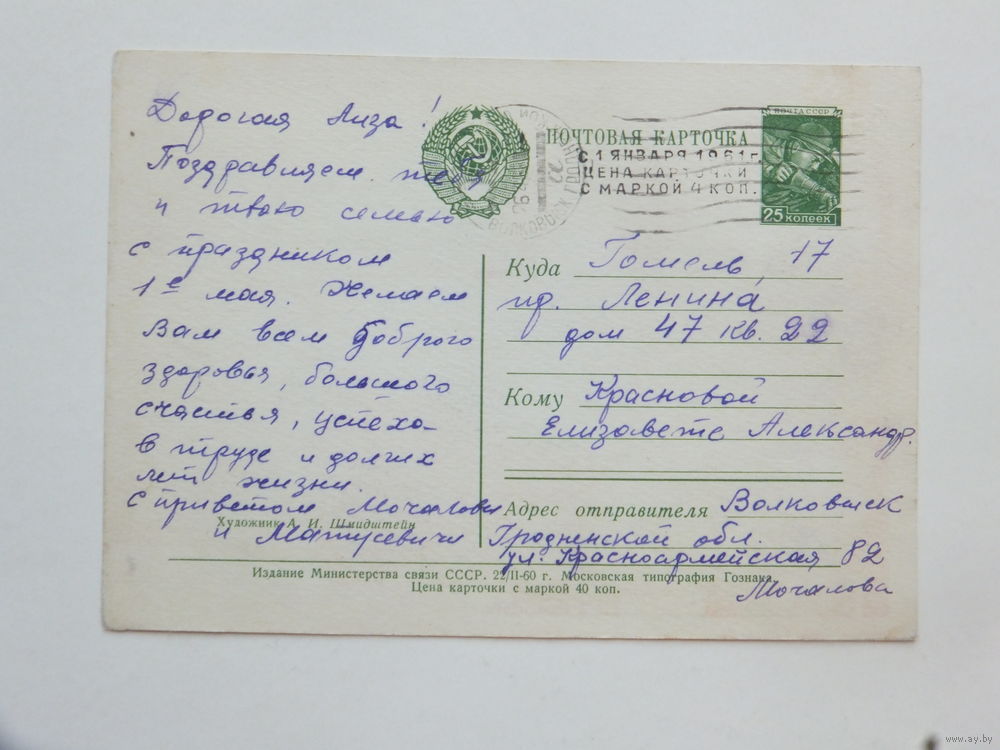 Дорогая Лиза!
Поздравляем тебя
и твою семью
с праздником
1ᵉ мая. Желаем
Вам всем доброго
здоровья, большого
счастья, успехо-
в труде и долгих
лет жизни.
С приветом Мочаловы
и Матусевичи
Художник А. И. Шмидштейн
ПОЧТОВАЯ КАРТОЧКА
С 1 ЯНВАРЯ 1961 г.
ЦЕНА КАРТОЧКИ
С МАРКОЙ 4 КОП.
ПОЧТА СССР
25 КОПЕЕК
ВОЛКОВЫСК
Куда Гомель, 17
пр. Ленина
дом 47 кв. 22
Кому Красновой
Елизавете Александр.
Адрес отправителя Волковыск
Гродненской обл.
ул. Красноармейская 82
Мочалова
Издание Министерства связи СССР. 22/II-60 г. Московская типография Гознака.
Цена карточки с маркой 40 коп.
www.ay.by